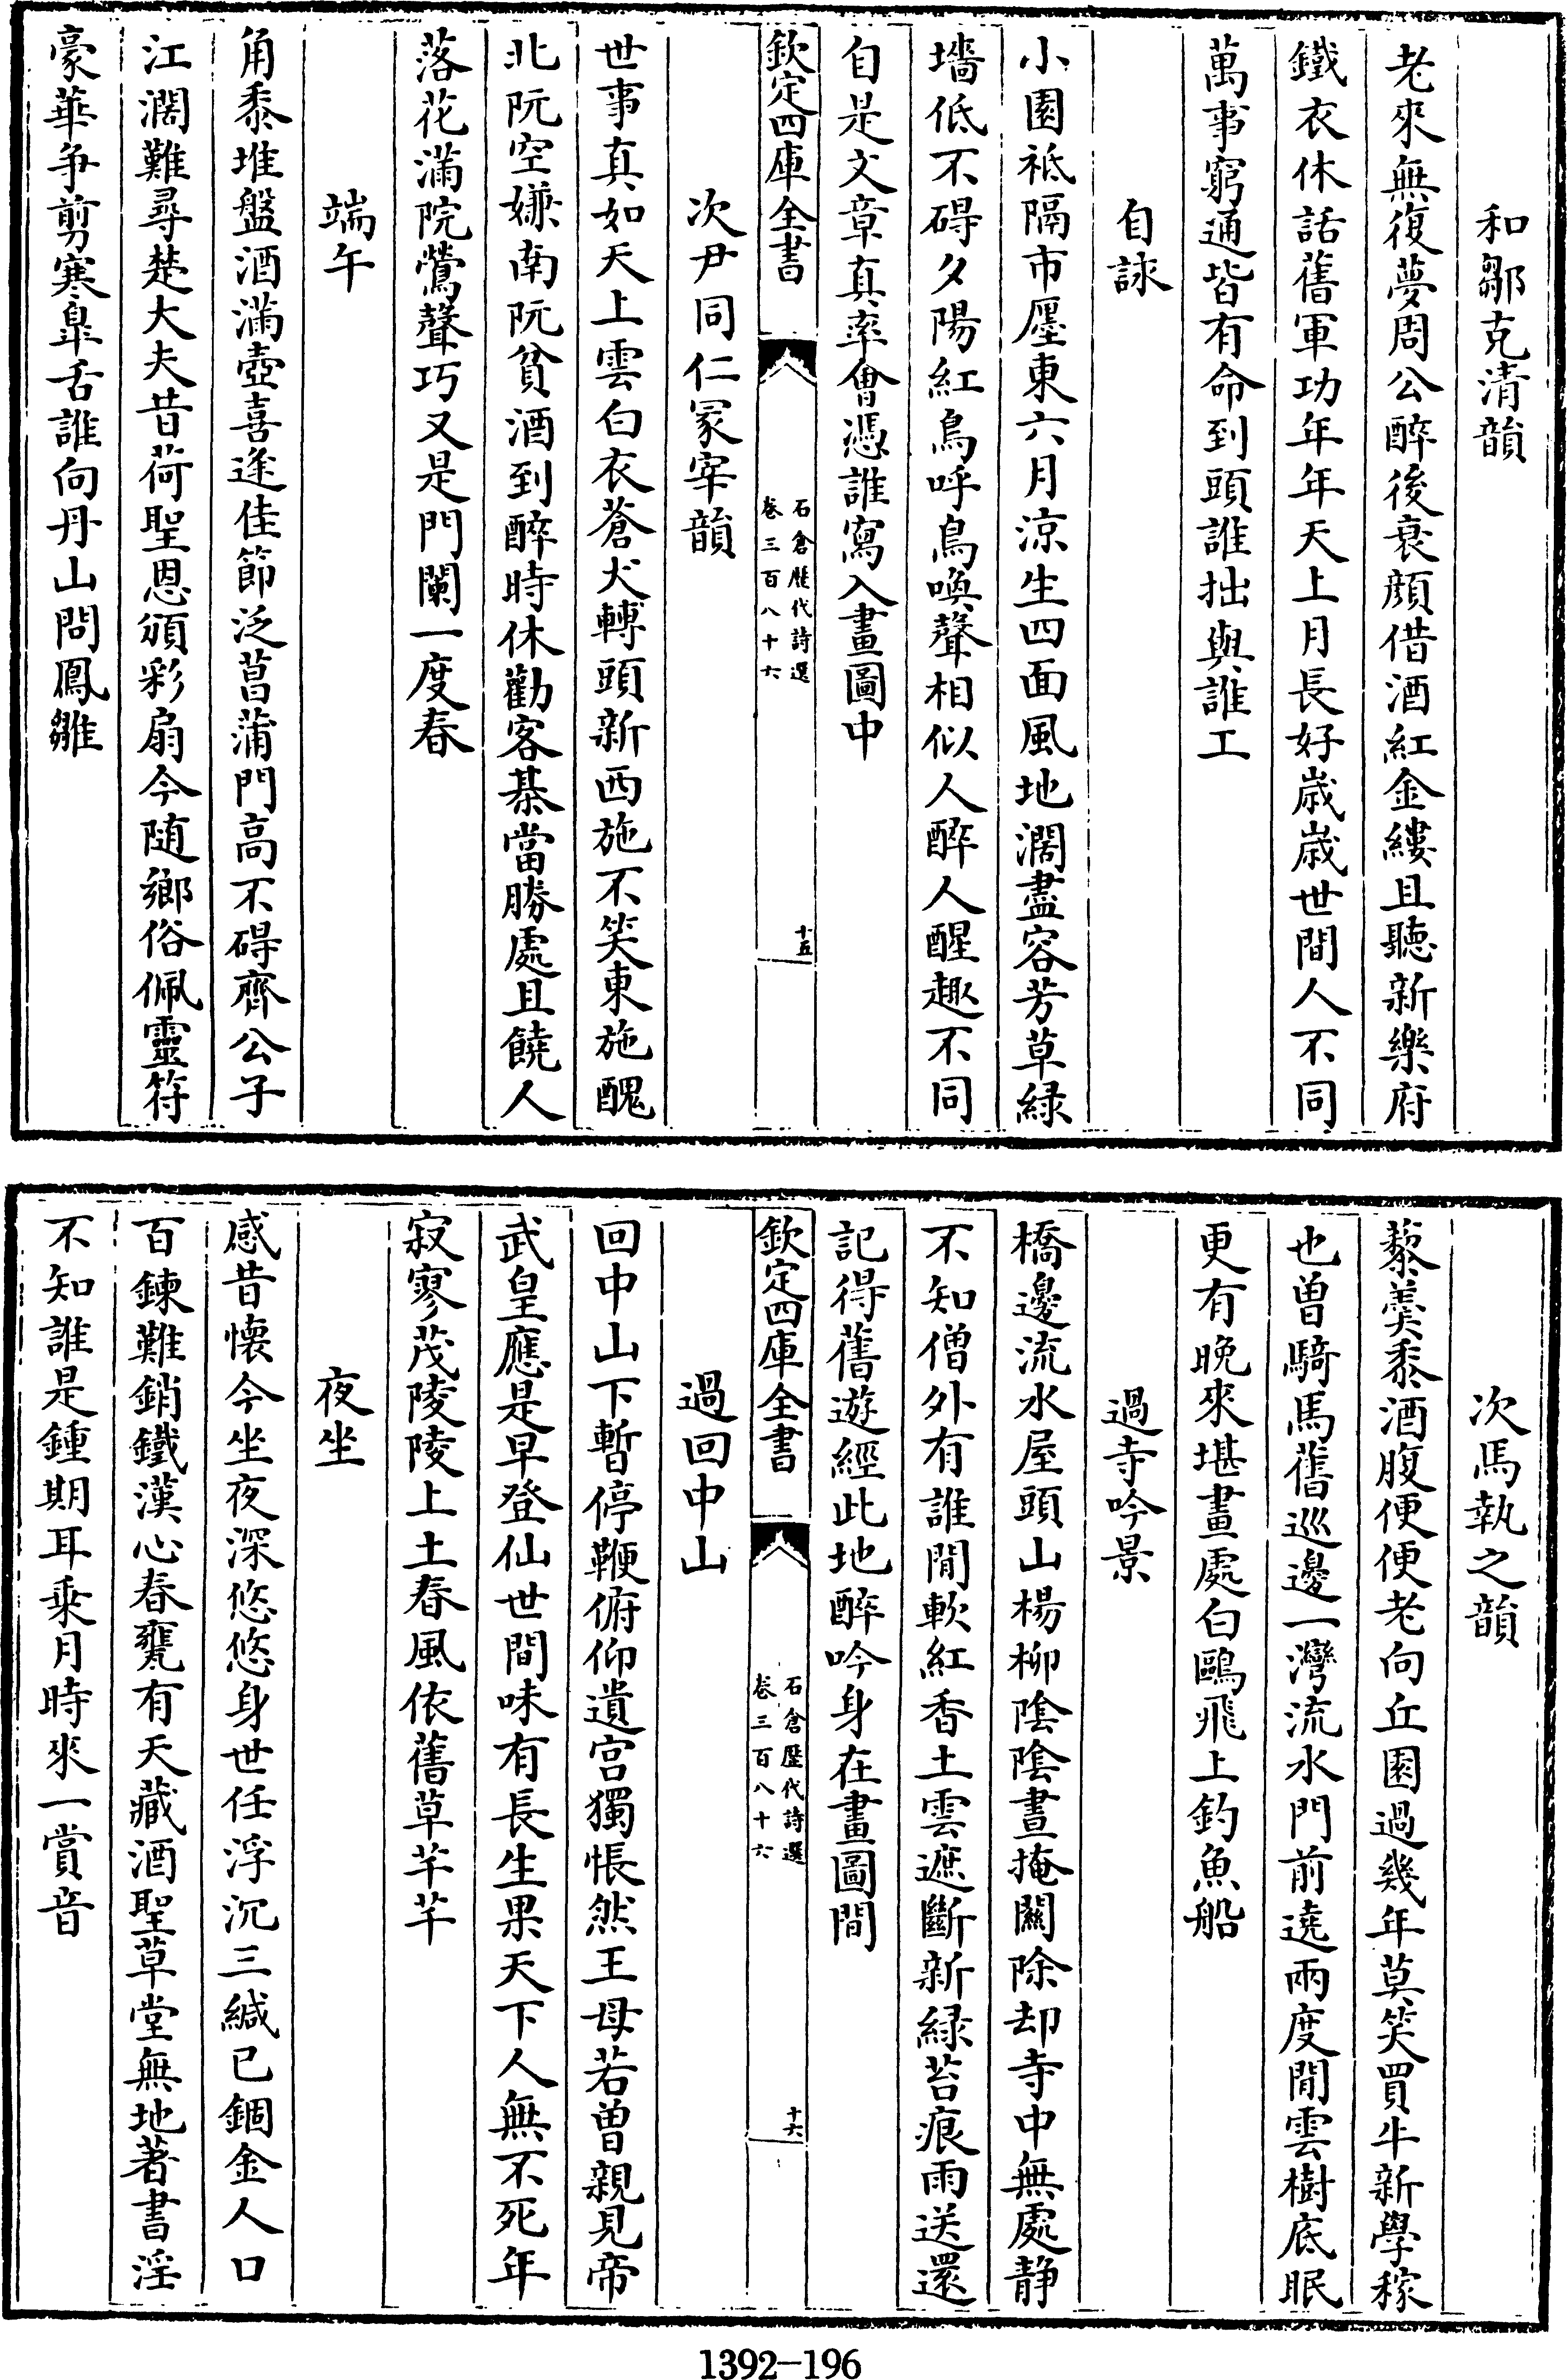 和鄒克清韻
老來無復夢周公醉後衰顔借酒紅金縷且聽新樂府
鐵衣休話舊軍功年年天上月長好歲歲世間人不同
萬事窮通皆有命到頭誰拙與誰工
自詠
小園祗隔市廛東六月涼生四面風地濶盡容芳草緑
墻低不碍夕陽紅鳥呼鳥喚聲相似人醉人醒趣不同
自是文章真率會憑誰寫入畫圖中
欽定四庫全書
石倉歷代詩選
卷三百八十六
十五
次尹同仁冢宰韻
世事真如天上雲白衣蒼犬轉頭新西施不笑東施醜
北阮空嫌南阮貧酒到醉時休勸客棊當勝處且饒人
落花滿院鶯聲巧又是門闌一度春
端午
角黍堆盤酒滿壺喜逢佳節泛菖蒲門高不碍齊公子
江濶難尋楚大夫昔荷聖恩頒彩扇今随鄉俗佩靈符
豪華争剪寒臯舌誰向丹山問鳳雛
次馬執之韻
藜羮黍酒腹便便老向丘園過幾年莫笑買牛新學稼
也曽騎馬舊巡邊一灣流水門前遶兩度閒雲樹底眠
更有晚來堪畫處白鷗飛上釣魚船
過寺吟景
橋邊流水屋頭山楊柳陰陰晝掩關除却寺中無處静
不知僧外有誰閒軟紅香土雲遮斷新緑苔痕雨送還
記得舊遊經此地醉吟身在畫圖間
欽定四庫全書
石倉歷代詩選
卷三百八十六
十六
過回中山
回中山下暫停鞭俯仰遺宫獨悵然王母若曽親見帝
武皇應是早登仙世間味有長生果天下人無不死年
寂寥茂陵陵上土春風依舊草芊芊
夜坐
感昔懐今坐夜深悠悠身世任浮沉三緘已錮金人口
百鍊難銷鐵漢心春甕有天藏酒聖草堂無地著書淫
不知誰是鍾期耳乗月時來一賞音
1392-196